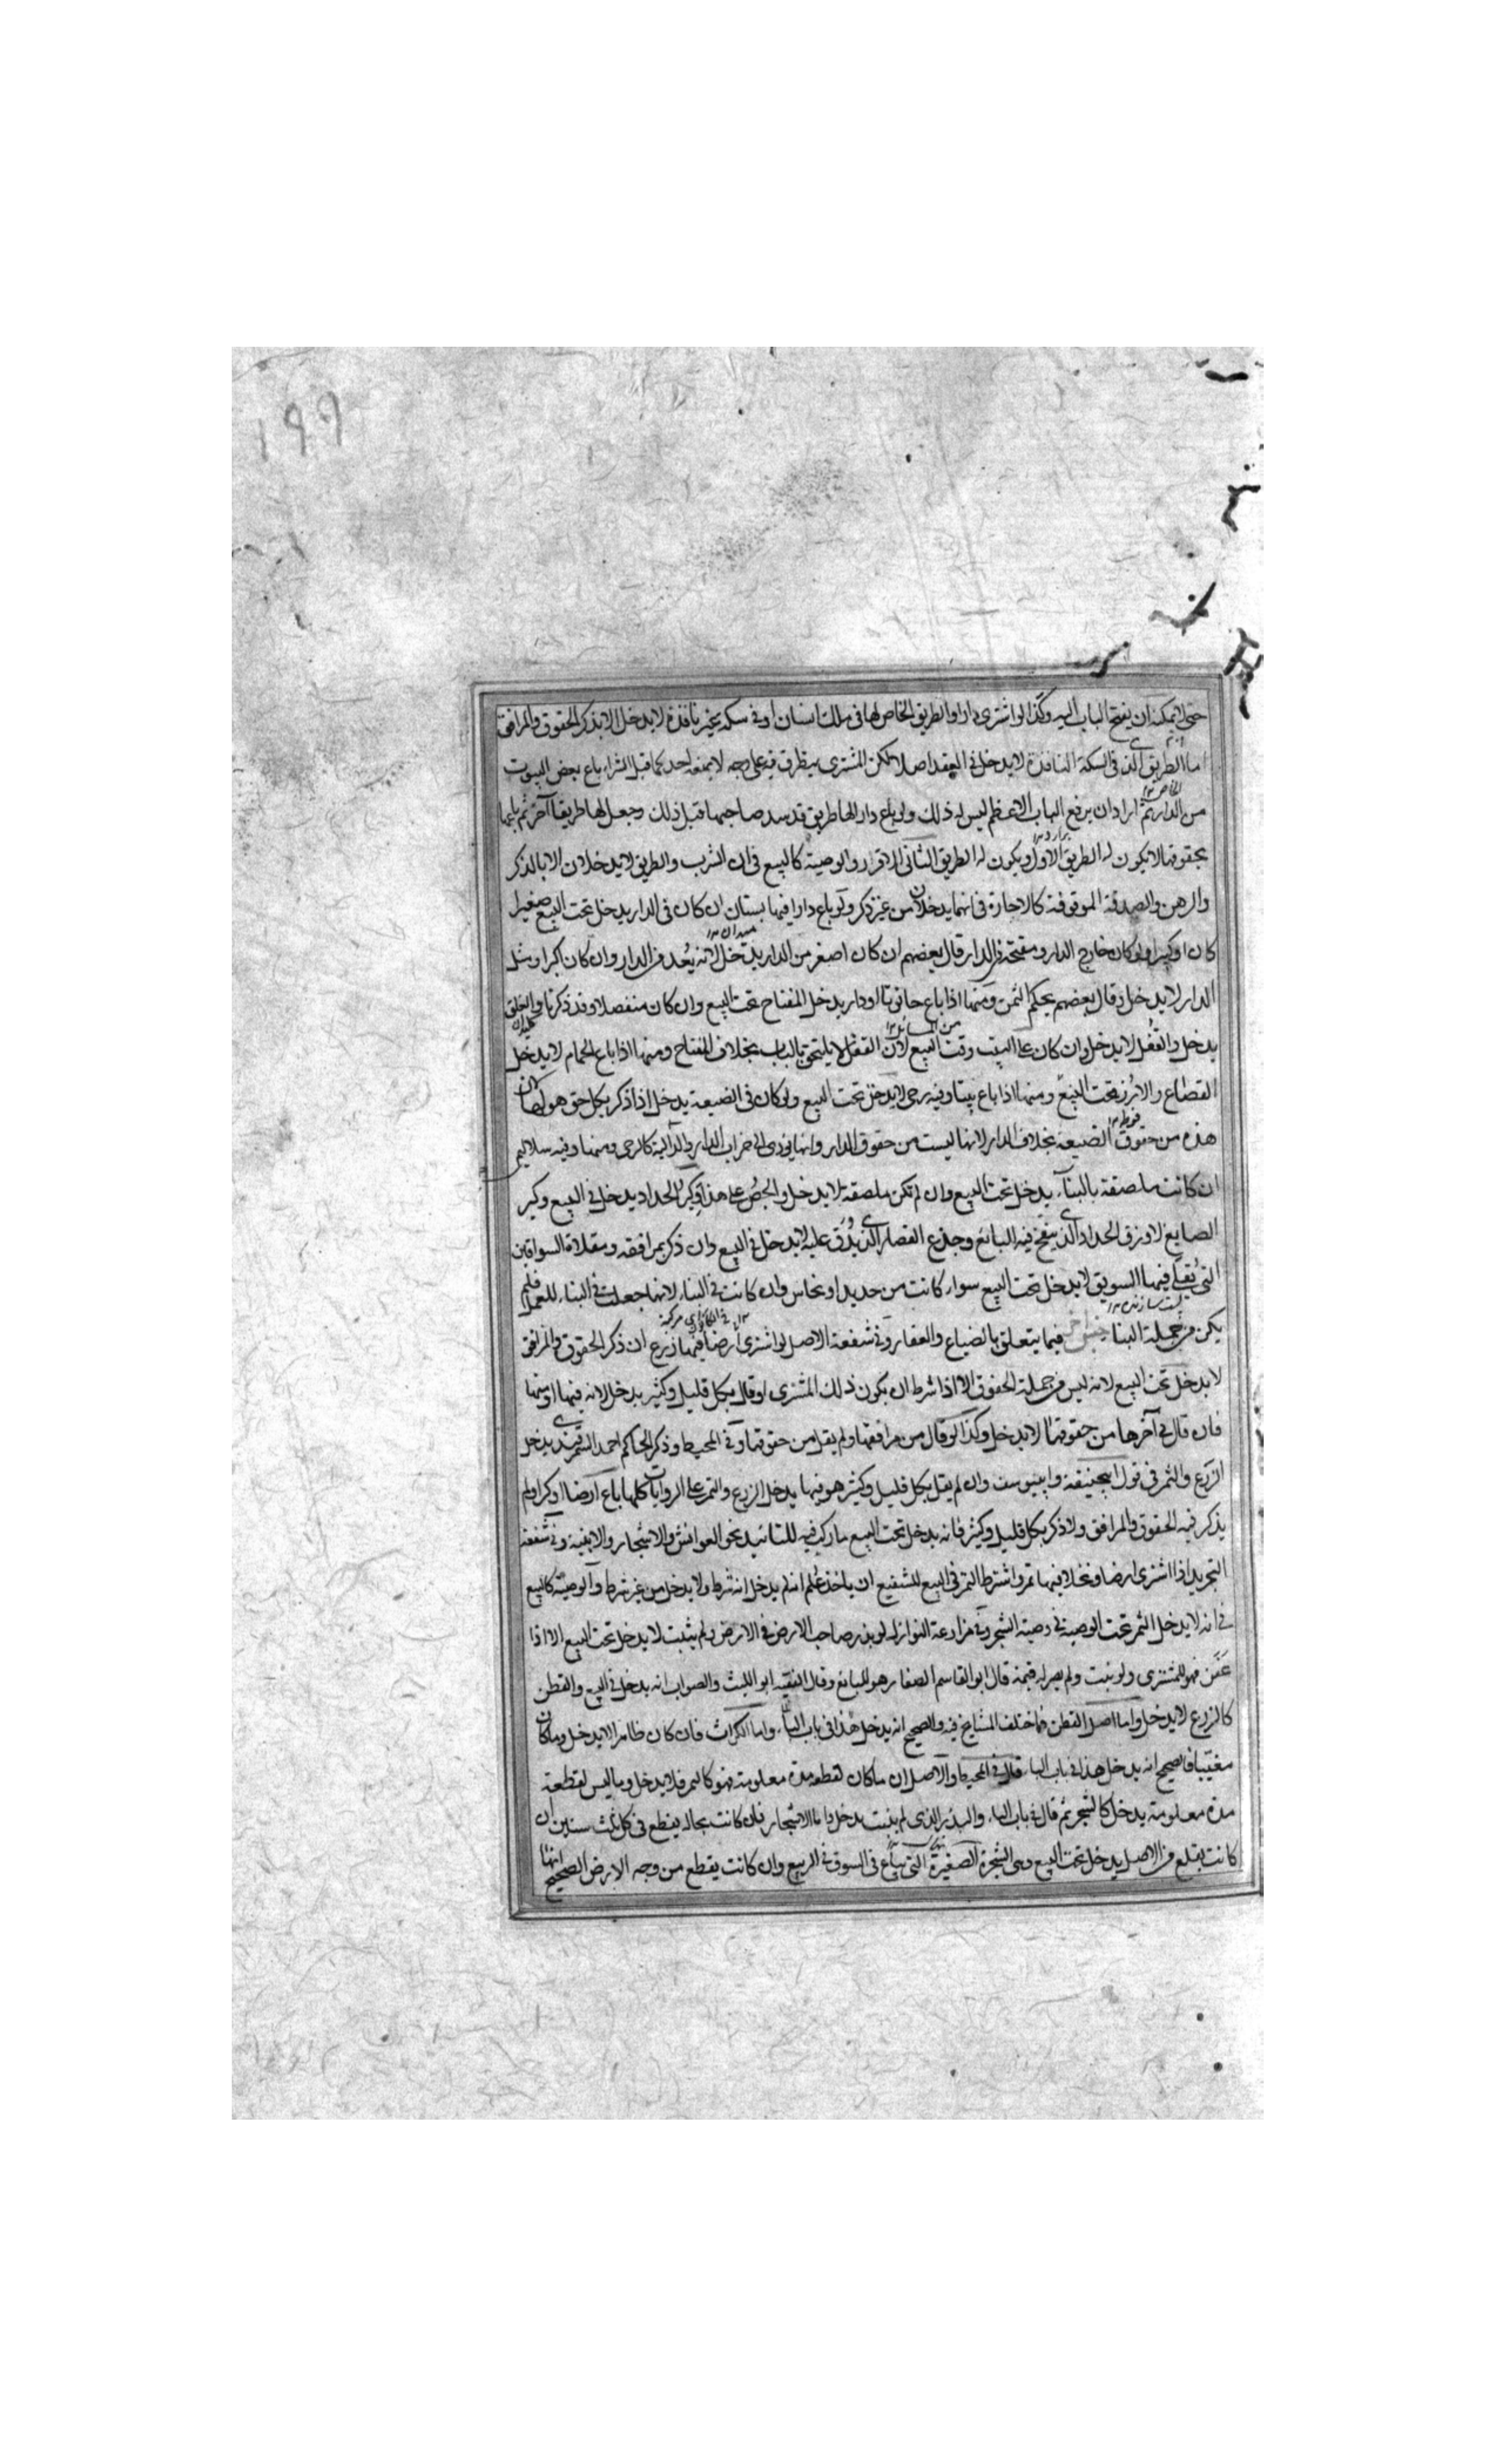 ١٩٩
حتى لا يمكنه ان يفتح الباب اليه وكذا لو اشترى دارا والطريق الخاص لها فى ملك انسان او فى سكة غير نافذة لا يدخل الا بذكر الحقوق والمرافق
اما الطريق الذى فى السكة النافذة لا يدخل فى العقد اصلا لكن المشترى يتطرق فيه على وجه لا يمنعه احد كما قبل الشراء باع بعض البيوت
من الدار ثم اراد ان يرفع الباب الاعظم ليس له ذلك ولو باع دارا لها طريق قد سد صاحبها قبل ذلك وجعل لها طريقا آخر ثم باعها
بحقوقها لا يكون له الطريق الاول ويكون له الطريق الثانى الاقرار والوصية كالبيع فى ان الشرب والطريق لا يدخلان الا بالذكر
والرهن والصدقة الموقوفة كالاجارة فى انهما يدخلان من غير ذكر ولو باع دارا فيها بستان ان كان فى الدار يدخل تحت البيع صغيرا
كان او كبيرا ولو كان خارج الدار ومفتحه فى الدار قال بعضهم ان كان اصغر من الدار يدخل لانه يُعد من الدار وان كان اكبر او مثل
الدار لا يدخل وقال بعضهم يحكم الثمن ومنها اذا باع حانوتا او دار يدخل المفتاح تحت البيع وان كان منفصلا وقد ذكرنا والغلق
يدخل والقفل لا يدخل وان كان على البيت وقت البيع لان القفل لا يلتحق بالباب بخلاف المفتاح ومنها اذا باع الحمام لا يدخل
القصاع والازر تحت البيع ومنها اذا باع بيتا وفيه رحى لا يدخل تحت البيع ولو كان فى الضيعة يدخل اذا ذكر بكل حق هو لها لان
هذه من حقوق الضيعة بخلاف الدار لانها ليست من حقوق الدار وانها يؤدى الى خراب الدار والدالية كالرحى ومنها وفيه سلاليم
ان كانت ملصقة بالبناء يدخل تحت البيع وان لم تكن ملصقة لا يدخل والجص على هذا وكير الحداد يدخل فى البيع وكير
الصايغ لا وزق الحداد الذى ينفخ فيه البائع وجذع القصار الذى يُدَق عليه لا يدخل فى البيع وان ذكر بمرافقه ومقلاة السواقين
التى يُقلى فيها السويق لا يدخل تحت البيع سواء كانت من حديد او نحاس وان كانت فى البناء لانها جعلت فى البناء للعمل فلم
يكن من جملة البناء فيما يتعلق بالضياع والعقار وفى شفعة الاصل لو اشترى ارضا فيها زرع ان ذكر الحقوق والمرافق
لا يدخل تحت البيع لانه ليس من جملة الحقوق الا اذا شرط ان يكون ذلك المشترى او قال بكل قليل وكثير يدخل لانه فيها او منها
فان قال فى آخرها من حقوقها لا يدخل وكذا لو قال من مرافقها ولم يقل من حقوقها وفى المحيط وذكر الحاكم احمد السمرقندى يدخل
الزرع والثمر فى قول ابيحنيفة وابييوسف وان لم يقل بكل قليل وكثير هو فيها يدخل الزرع والثمر على الروايات كلها باع ارضا او كرما ولم
يذكر فيه الحقوق والمرافق ولا ذكر بكل قليل وكثير فانه يدخل تحت البيع ما ركب فيه للتائيد نحو العوائش والاشجار والابنية وفى شفعة
التجريد اذا اشترى ارضا ونخلا فيها ثمر واشترط الثمر فى البيع للشفيع ان ياخذ عُلم انه لم يدخل انه شرط ولا يدخل من غير شرط والوصية كالبيع
فى انه لا يدخل الثمر تحت الوصية فى وصية الشجر وفى مزارعة النوازل لو بذر صاحب الارض فى الارض ولم ينبت لا يدخل تحت البيع الا اذا
عَفَن فهو للمشترى ولو نبت ولم يصر له قيمة قال ابو القاسم الصفار هو للبائع وقال الفقيه ابو الليث والصواب انه يدخل فى البيع والقطن
كالزرع لا يدخل واما اصل القطن فما اختلف المشايخ فيه والصحيح انه يدخل هذا فى باب الباء واما الكراث فان كان ظاهرا لا يدخل وما كان
مغيبا فالصحيح انه يدخل هذا فى باب الباء قال فى المحيط والاصل ان ما كان لقطعه مدة معلومة فهو كالثمر فلا يدخل وما ليس لقطعه
مدة معلومة يدخل كالشجر ثم قال فى باب الباء والبذر الذى لم ينبت يدخل واما الاشجار فان كانت بحاله يقطع فى كل ثلث سنين ان
كانت يقلع من الاصل يدخل تحت البيع وهى الشجرة الصغيرة التى يباع فى السوق فى الربيع وان كانت يقطع من وجه الارض الصحيح انها